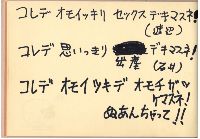 コレデ オモイッキリ セックス デキマスネ!
(渡辺)
コレデ 思いっきり 出産 デキマスネ!
コレデ オモイッキデ オモチガツ
ケマスネ!
ぬあんちゃって!!